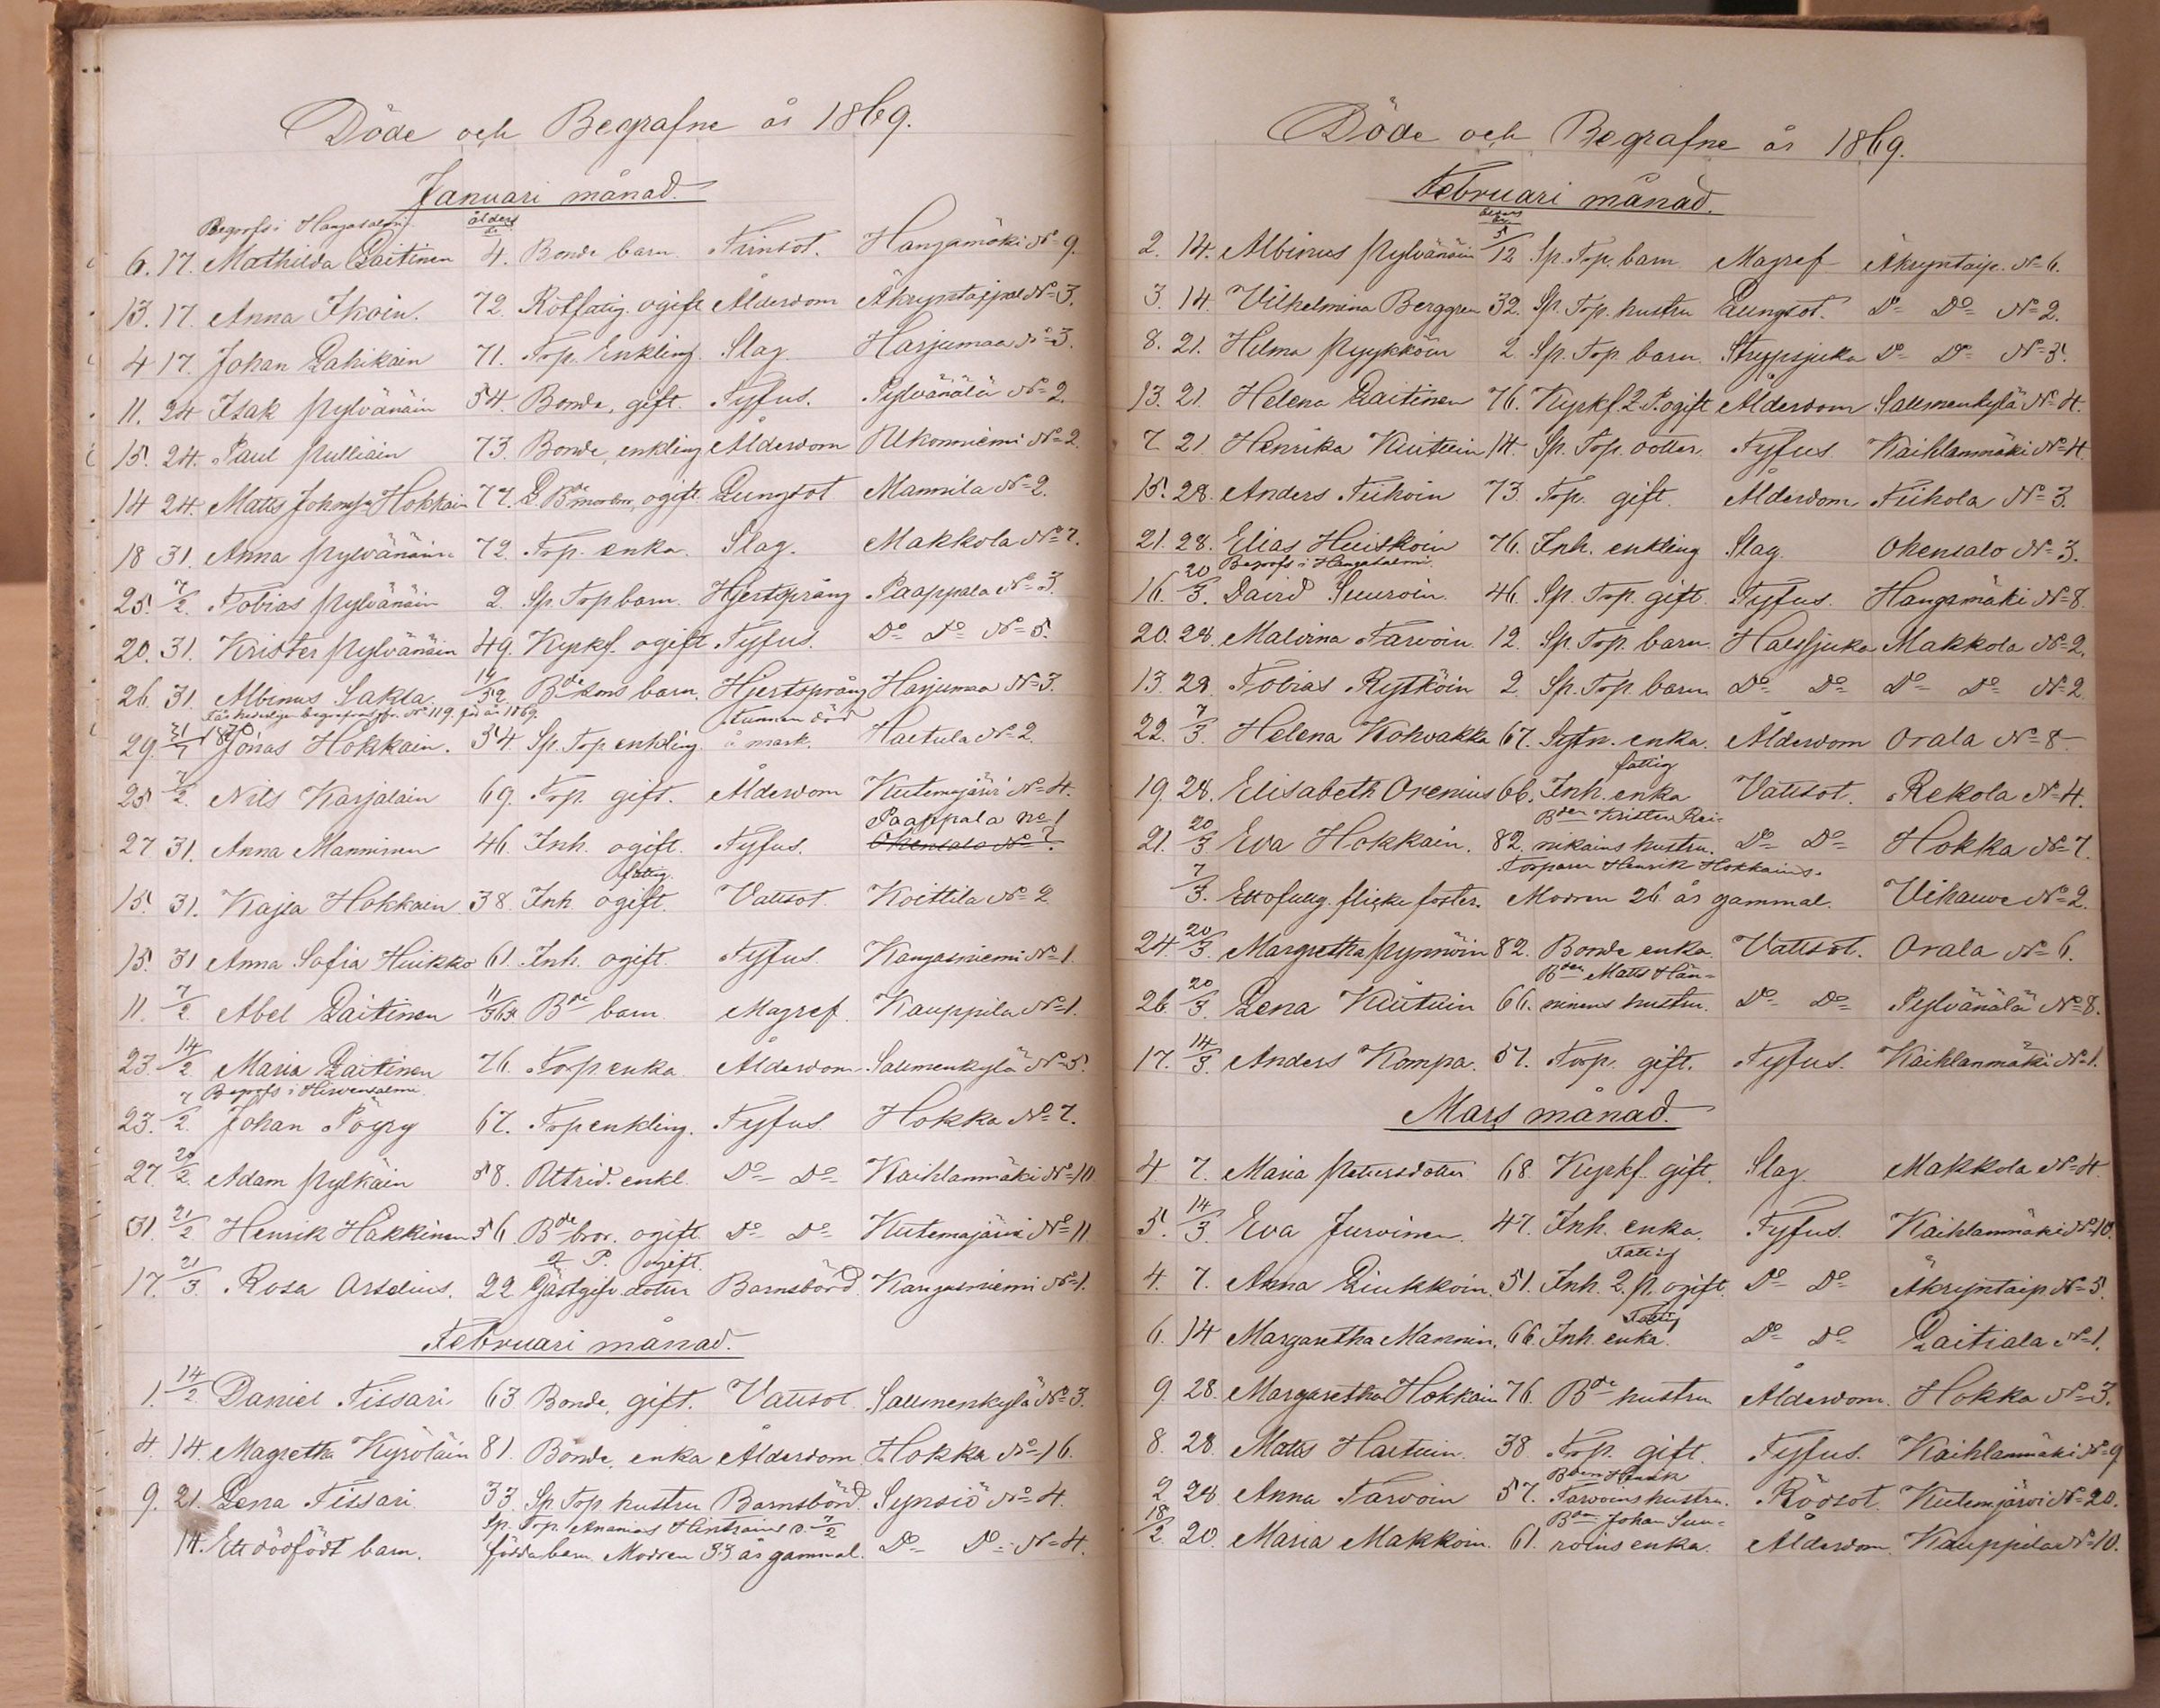 Döde och Begrafne år 1869.
Januari månad.
Begrofs i Hangasalmi
ålders
6. 17. Mathilda Laitinen 4. Bonde barn. Hangamäki No 9.
13. 17. Anna Ikoin. 72. Rotfatig. ogift Ålderdom Äkryntaipal No 3.
4 17. Johan Lahikain 71. Torp. Enkling. Slag. Harjumaa No 3.
11. 24 Isak Pylvänäin 54. Bonde, gift. Tyfus. Pylvänälä No 2.
15. 24. Paul Pulliäin 73. Bonde, enkling Ålderdom Ukonniemi No 2
14 24. Matts Johansson Hokkain 77. ogift. Lungsot Mannila No 2.
18 31. Anna Pylvänäin 72. Torp. enka. Slag. Makkola No 7.
25. 7/2. Tobias Pylvänäin 2. Sp. Torp barn. Hjertsprång Paappala No 3.
20. 31. Krister Pylvänäin 49. Kyrkf. ogift Tyfus. Do Do No 5.
26. 31. Albinus Sakla. 14/52 Bde sons barn. Hjertsprång Harjumaa No 3.
No 119. för år 1869.
29. 31/7 1870 Jonas Hokkain. 54. Sp. Torp enkling. funnen död å mark. Haetula No 2.
25 7/2. Nils Karjalain 69. Torp. gift. Ålderdom Kutemajärvi No 4.
Paappala No 1
27 31. Anna Manninen 46. Inh. ogift. Tyfus. Ohensalo No 7.
fattig.
15. 31. Kajsa Hokkain 38. Inh ogift. Vattsot. Koittila No 2
15. 31 Anna Sofia Huikko 61. Inh. ogift. Tyfus. Kangasniemi No 1.
11. 7/2. Abel Laitinen 11/365. Bde barn. Magref. Kauppila No 1.
23. 14/2 Maria Laitinen 76. Torp enka Ålderdom Salmenkylä No 5.
Begrofs i Hirvensalmi.
23. 7/2. Johan Pöyry 67. Torp enkling. Tyfus. Hokka No 7.
27. 20/2. Adam Pylkäin 58. Attrid. enkl. Do Do Kaihlanmäki No 10
31. 21/2 Henrik Häkkinen 56. Bde bror. ogift. Do Do Kutemajärvi No 11
2 P. ogift.
17. 21/3. Rosa Arselius. 22 Gästgifv. dotter Barnsbörd. Kangasniemi No 1.
Februari månad.
1. 14/2 Daniel Tissari 63 Bonde, gift. Vattsot. Salmenkylä No 3.
4. 14. Magretha Kyröläin 81. Bonde, enka Ålderdom Hokka No 16.
9. 21. Lena Tissari 33. Sp Torp hustru Barnsbörd. Synsiö No 4.
Sp. Torp. Ananias Hintsains d. 7/2
14. Ett dödfödt barn. födda barn. Modren 33 år gammal. Do Do No 4.
Döde och Begrafne år 1869.
Februari månad.
2. 14. Albinus Pylvänäin 5/12 Sp. Torp. barn Magref Äkryntaip. No 6.
3. 14. Vilhelmina Berggren 32. Sp. Torp. hustru Lungsot. Do Do No 2.
8. 21. Hilma Pyykköin 2 Sp. Torp. barn. Strypsjuka Do Do No 3.
13. 21. Helena Laitinen 76. Kyrkf. 2. P. ogift Ålderdom Salmenkylä No 4.
7. 21. Henrika Kuituin 14. Sp. Torp. dotter. Tyfus. Kaihlanmäki No 4.
15. 28. Anders Tiihoin 73. Torp. gift. Ålderdom Tiihola No 3.
21. 28. Elias Huiskoin 76. Inh. enkling Slag. Ohensalo No 3.
Begrofs i Hangasalmi.
16. 20/3. David Suuroin. 46. Sp. Torp. gift. Tyfus. Hangamäki No 8.
20. 28. Malvina Tarvoin 12. Sp. Torp. barn. Halssjuka Makkola No 2.
13. 28. Tobias Rytköin 2. Sp. Torp. barn Do Do Do Do No 2
22. 7/3. Helena Kohvakka 67. Sytn. enka. Ålderdom Orala No 8.
fattig
19. 28. Elisabeth Orenius 66. Inh. enka Vattsot. Rekola No 4.
Bden Krister Rei-
21. 20/3 Eva Hokkain. 82. nikains hustru. Do Do Hokka No 7.
Torparen Henrik Hokkains.
7/3. Ett ofullg. flicke foster. Modren 26 år gammal. Vihauve No 2.
24. 20/3. Margretha Pynnöin 82. Bonde enka. Vattsot. Orala No 6.
Bden Matts Hän-
26. 20/3. Lena Kuituin 66. ninens hustru. Do Do Pylvänälä No 8.
17. 14/3. Anders Kompa. 57. Torp. gift. Tyfus. Kaihlanmäki No 1.
Mars månad.
4 7. Maria Petersdotter 68. Kyrkf. gift. Slag. Makkola No 4
5. 14/3. Eva Jurvinen. 47. Inh. enka. Tyfus. Kaihlanmäki No 10.
Fattig
4. 7. Anna Liukkoin. 51. Inh. 2. p. ogift. Do Do Äkryntaip No 5.
Fattig
6. 14 Margaretha Mannin. 66. Inh. enka. Do Do Laitiala No 1.
9. 28. Margaretha Hokkain 76. Bde hustru Ålderdom. Hokka No 3.
8. 28. Matts Haetuin. 38. Torp. gift. Tyfus. Kaihlanmäki No 9
Bden Henrik
2. 28. Anna Tarvoin 57. Tarvoins hustru. Rödsot. Kutemjärvi No 20.
Bden Johan Suu-
18/2. 20. Maria Makkoin. 61. roins enka. Ålderdom. Kauppila No 10.